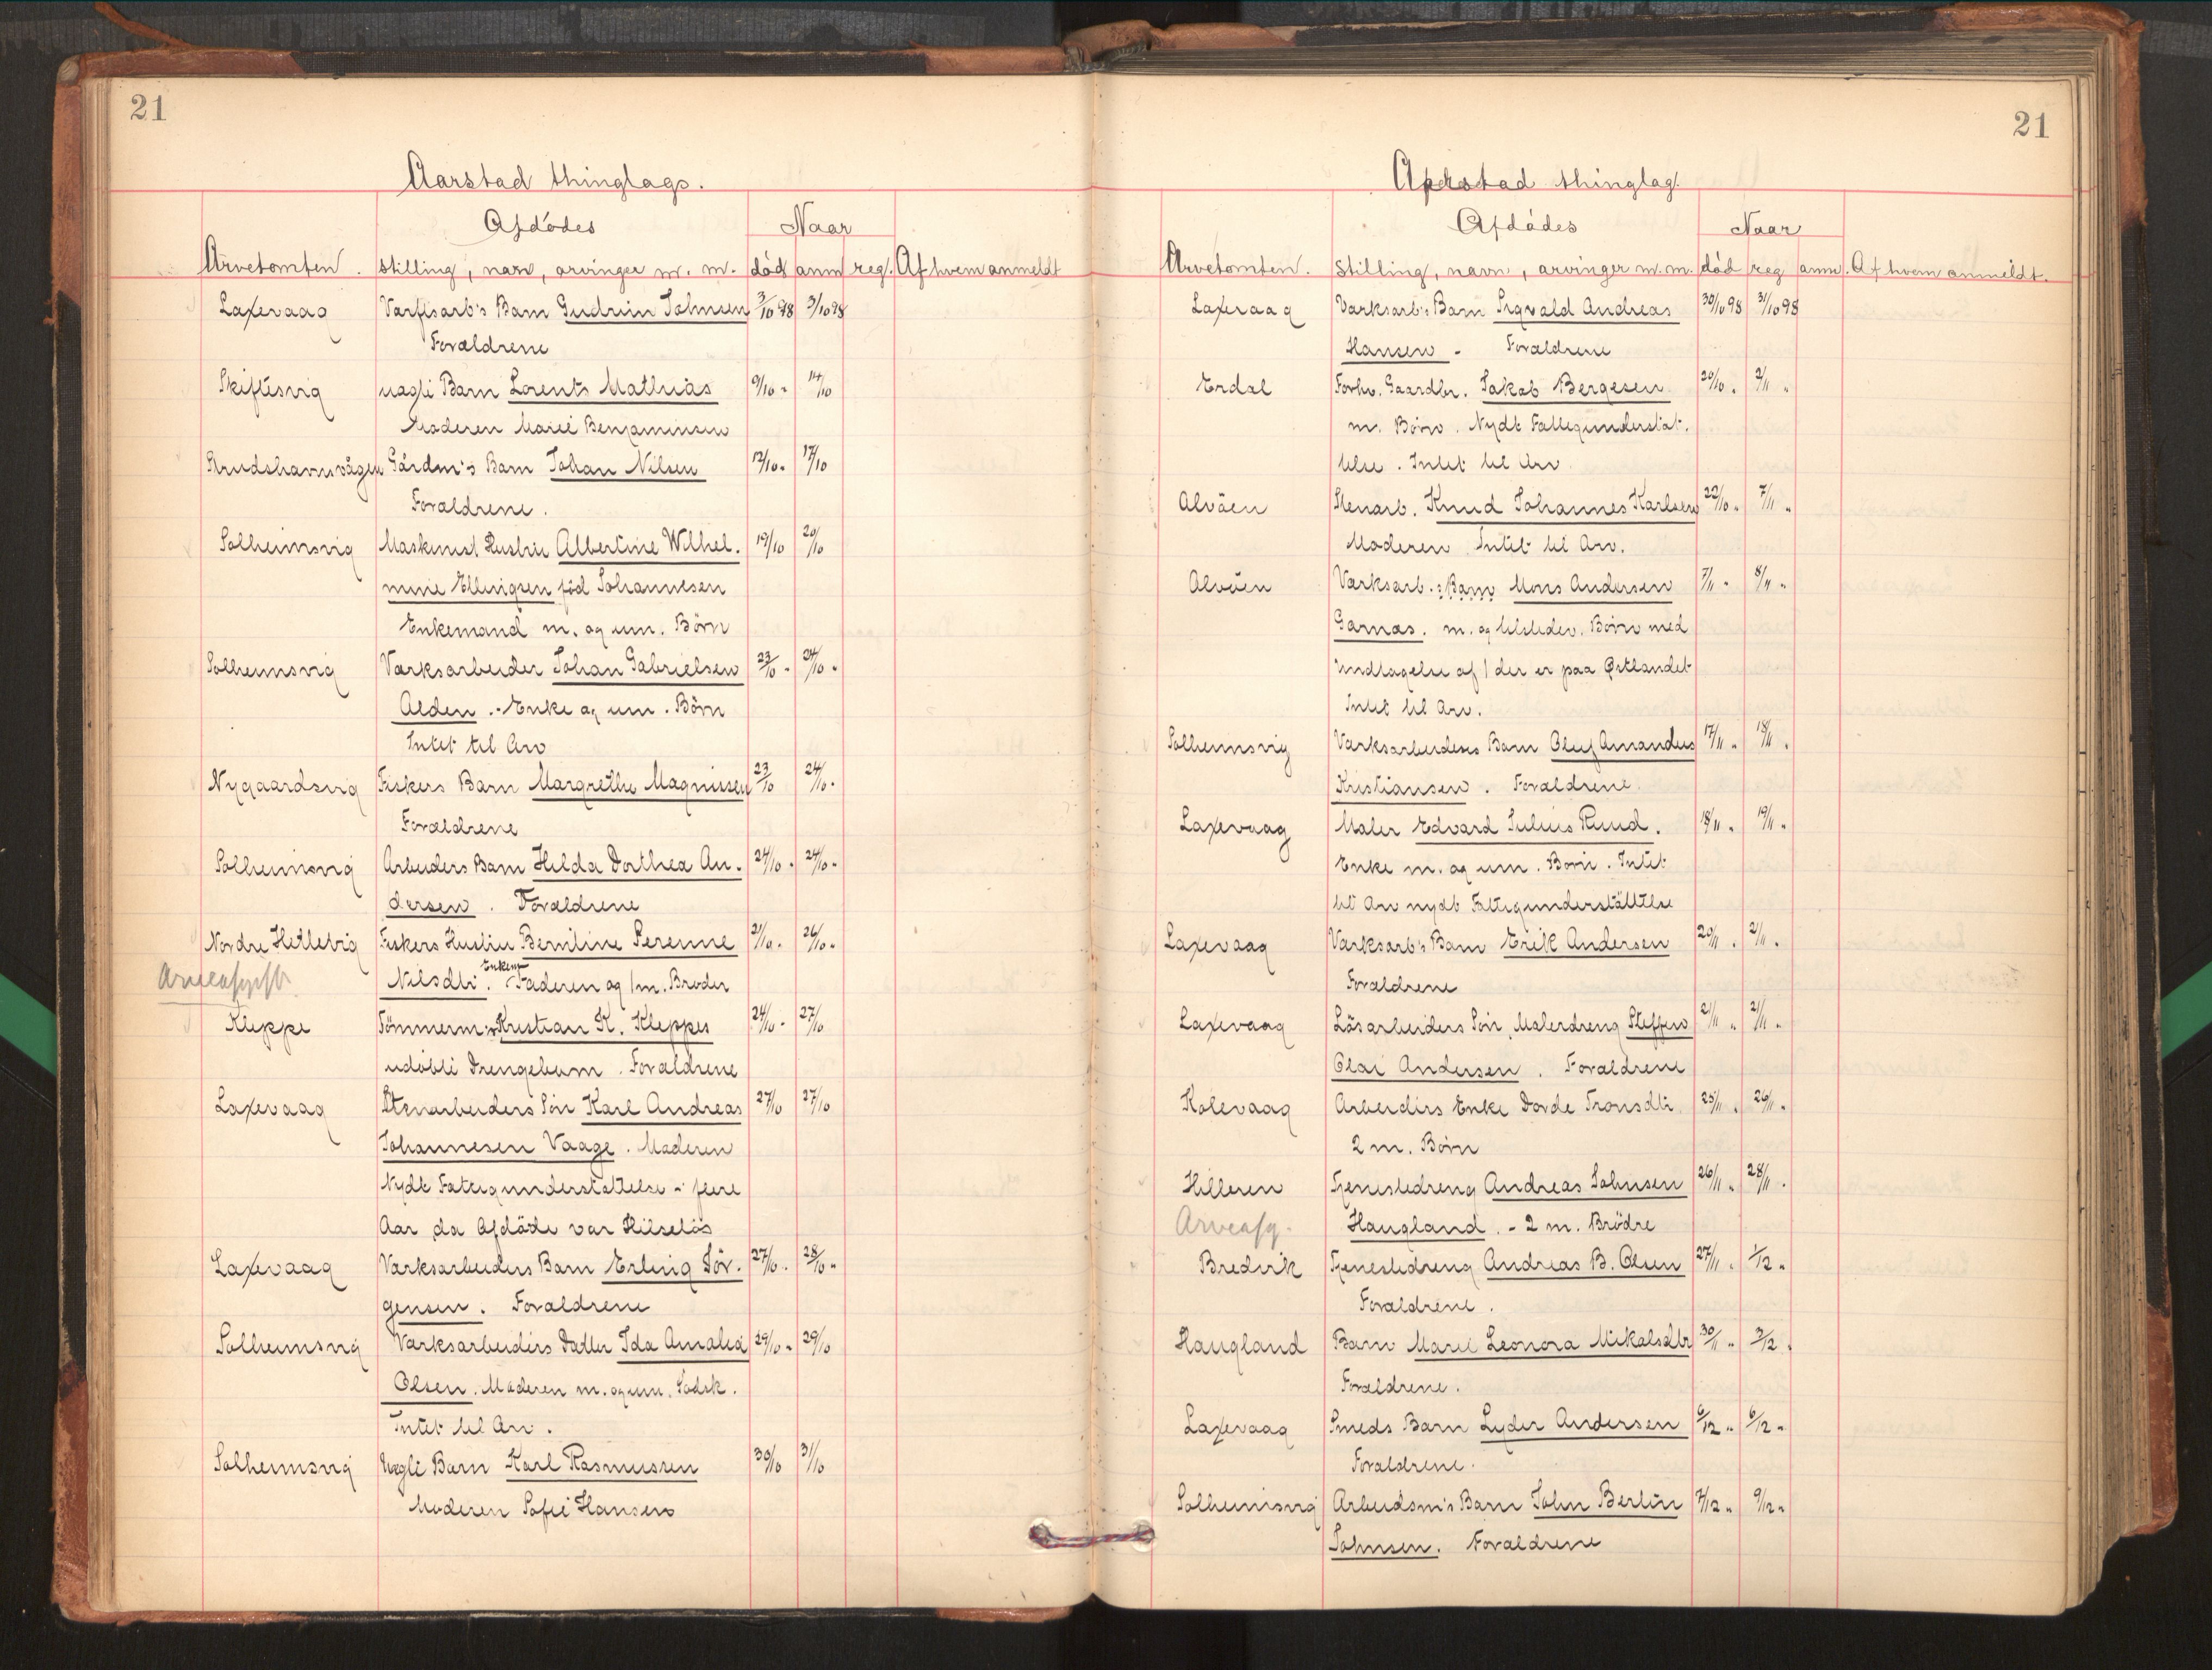 21
Aarstad thinglags.
Afdödes
Naar
Arvetomten. stilling, navn, arvinger m. m. död anm reg. Af hvem anmeldt
Laxevaag Varftsarb's Barn Gudrun Johnsen 3/10 98 3/10 98
Forældrene
Skiftesvig uægte Barn Lorents Mathias 9/10 " 14/10
Moderen Marie Benjaminsen
Strudshavnsvågen Gårdm's Barn Johan Nilsen 12/10 " 17/10
Forældrene.
Solheimsvig Maskinist Hustru Albertine Wilhel. 19/10 20/10
mine Ellingsen född Johannesen
Enkemand m. og um. Börn
Solheimsvig Værksarbeider Johan Gabrielsen 23/10 " 24/10 "
Alden .- Enke og um. Börn
Intet til Arv
Nygaardsvig Fiskers Barn Margrethe Magnussen 23/10 24/10 "
Forældrene
Solheimsvig Arbeiders Barn Hilda Dorthea An. 24/10 " 24/10 "
dersen. Forældrene
Nordre Hetlevig Fiskers Hustru Berntine Serenne 21/10 " 26/10 "
Arveafgift Nilsdtr. Enkem. Faderen og 1 m. Broder
Kleppe Tömmerm's Kristian K. Kleppes 24/10 " 27/10
udöbte Drengebarn. Forældrene
Laxevaag Stenarbeiders Sön Karl Andreas 27/10 27/10
Johannesen Vaage. Moderen
Nydt Fattigunderstöttelse i flere
Aar da Afdöde var Hilselös
Laxevaag Værksarbeiders Barn Erling Jör. 27/10 " 28/10 "
gensen. Forældrene
Solheimsvig Værksarbeiders Datter Ida Amalia 29/10 " 29/10
Olsen. Moderen m. og um. Södsk.
Intet til Arv.
Solheimsvig Uægte Barn Karl Rasmussen 30/10 31/10
Moderen Sofie Hansen
21
Aarstad thinglag.
Afdödes
Naar
Arvetomten. Stilling, navn, arvinger m. m. död reg anm. Af hvem anmeldt.
Laxevaag Værksarb's Barn Sigvald Andreas 30/10 98 31/10 98
Hansen - Forældrene
Erdal Forhv. Gaardbr. Jakob Bergesen 20/10 " 2/11 "
m. Börn. Nydt Fattigunderstöt.
telse. Intet til Arv
Alvöen Stenarb. Knud Johannes Karlsen 22/10 " 7/11 "
Moderen Intet til Arv.
Alvöen Værksarb. :Barn Mons Andersen 7/11 " 8/11 "
Garnas. m. og tilsteder. Börn med
undtagelse af 1 der er paa Østlandet
Intet til Arv.
Solheimsvig Værksarbeiders Barn Oluf Amandus 17/11 " 18/11 "
Kristiansen. Forældrene
Laxevaag Maler Edvard Julius Rund. 18/11 " 19/11 "
Enke m. og um. Börn. Intet
til Arv nydt Fattigunderstöttelse
Laxevaag Værksarb's Barn Erik Andersen 20/11 " 21/11 "
Forældrene
Laxevaag Lösarbeiders Sön, Malerdreng Steffen 21/11 " 21/11 "
Olai Andersen. Forældrene
Kolevaag Arbeiders Enke Dorde Tronsdtr 25/11 " 26/11 "
2 m. Börn
Hilleren Tjenestedreng Andreas Johnsen 26/11 " 28/11 "
Arveafg. Haugland. - 2 m. Brödre
Bredvik Tjenestedreng Andreas B. Olsen 27/11 " 1/12 "
Forældrene.
Haugland Barn Marie Leonora Mikalsdtr 30/11 " 3/12 "
Forældrene.
Laxevaag Smeds Barn Lyder Andersen 6/12 " 6/12 "
Forældrene.
Solheimsvig Arbeidsm's Barn John Bertin 7/12 " 9/12 "
Johnsen. Forældrene